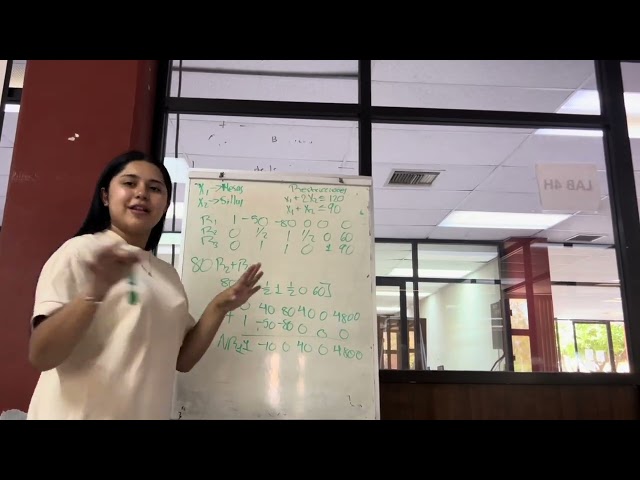 X₁ → Mesas
X₂ → Sillas
Restricciones
x₁ + 2X₂ ≤ 120
x₁ + x₂ ≤ 90
R₁ 1 -50 -80 0 0 0
R₂ 0 1/2 1 1/2 0 60
R₃ 0 1 1 0 1 90
80R₂+R
80 1/2 1 1/2 0 60]
0 40 80 40 0 4800
+ 1 -50 -80 0 0 0
NR₁ 1 -10 0 40 0 4800
LAB 4H